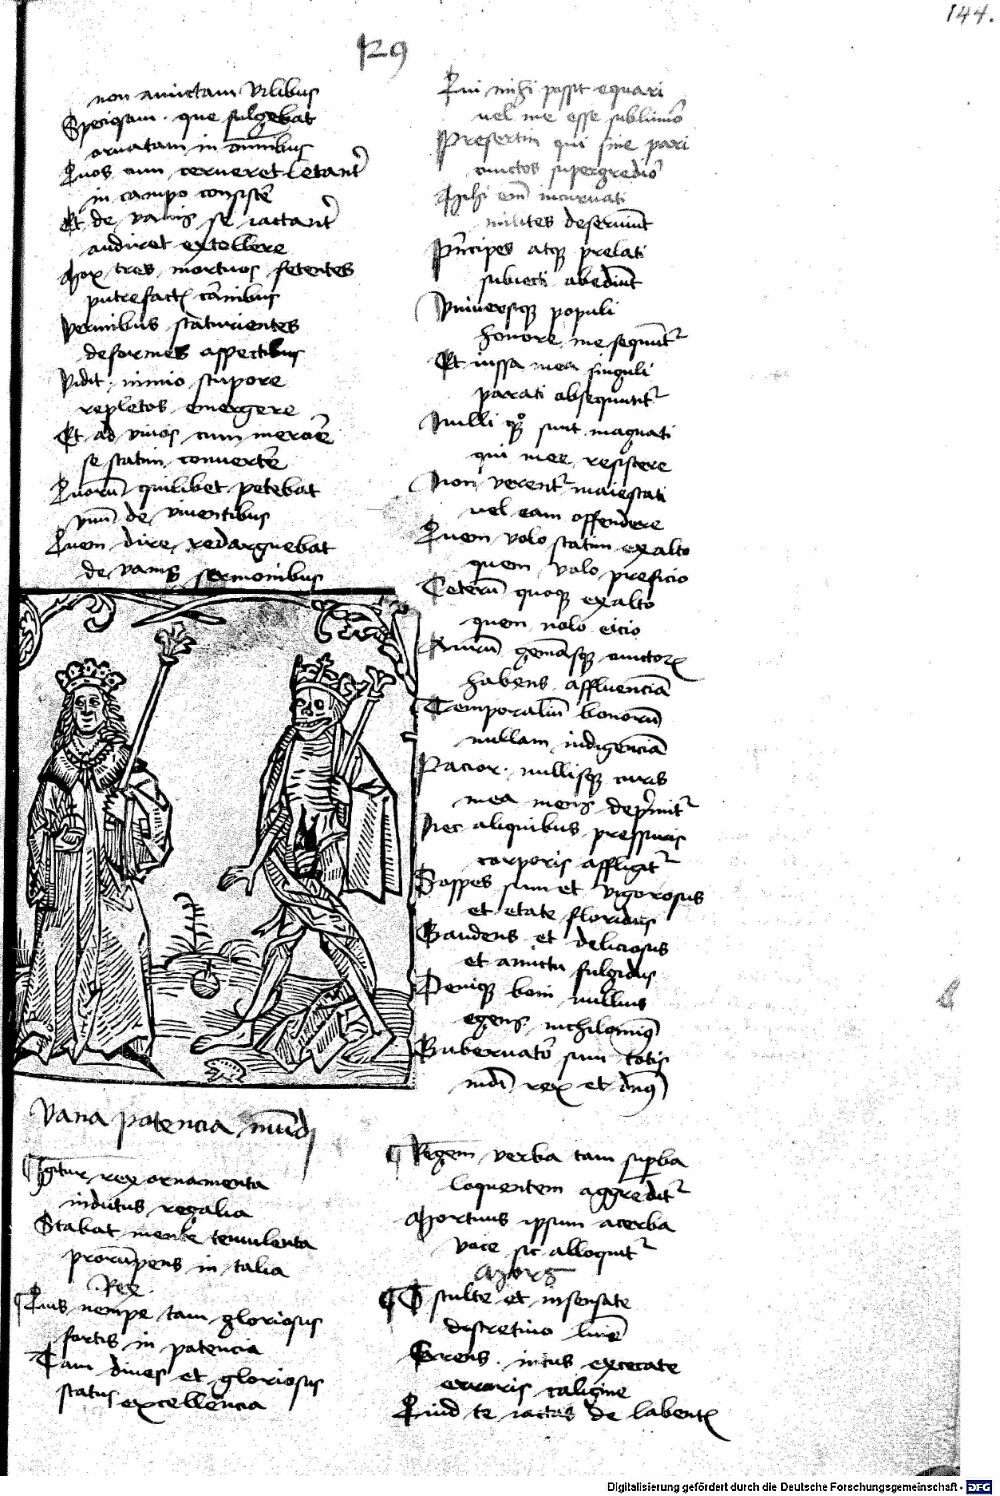 144.
129
non amictam vilibus
Speciosam que fulgebat
ornatam in omnibus
Quos cum cerneret letant̃
in campo consistẽ
Et de vanis se iactant̃
audiret extollere
Mox tres mortuos fetentes
putrefact̃ carnibus
vermibus scaturientes
deformes aspectibus
Vidit nimio stupore
repletos emergere
Et ad vivos cum merorẽ
se statim convertẽ
Quorũ quilibet petebat
vnũ de viventibus
Quem dire redarguebat
de vanis sermonibus
Vana potencia mũdj
Igitur rex ornamenta
indutus regalia
Stabat mente temulenta
prorũpens in talia
Rex
Quis nempe tam gloriosus
fortis in potencia
Tam dives et gloriosus
status excellẽcia
Qui mihi possit equari
vel me esse sublimiõ
Presertim qui sine pari
cunctos supergrediõ
Mihi em̃ incurvati
milites deserviũt
Prĩcipes atqꝫ prelati
subiecti obediũt
Universiqꝫ populi
honore me sequũtᷣ
Et iussa mea singuli
parati obsequũtᷣ
Nulli qꝫ sunt magnati
qui mee resistere
Non verentᷣ maiestati
vel eam offendere
Quem volo statim exalto
quem volo preficio
Ceterũ quoqꝫ exalto
quem nolo eicio
Aurũ gemãsqꝫ cunctorꝫ
habens affluenciã
Temporaliũ bonorũ
nullam indigenciã
Pacior nullisqꝫ curis
mea mens dep̃mitᷣ
Nec aliquibus pressuris
corporis affligitᷣ
Sospes sum et vigorosus
et etate floridus
Gaudens et deliciosus
et amictu fulgidus
Deniqꝫ boni nullius
egens nichilominꝰ
Gubernatõ sum totis
mũdi rex et dñs
Regem verba tam supba
loquentem aggreditᷣ
Mortuus ipsum acerba
voce sic alloquitᷣ
Mors
O stulte et insensate
discretivo lumẽ
Carens intus excecate
erroris caligine
Quid te iactas de labentꝫ
Digitalisierung gefördert durch die Deutsche Forschungsgemeinschaft - DFG